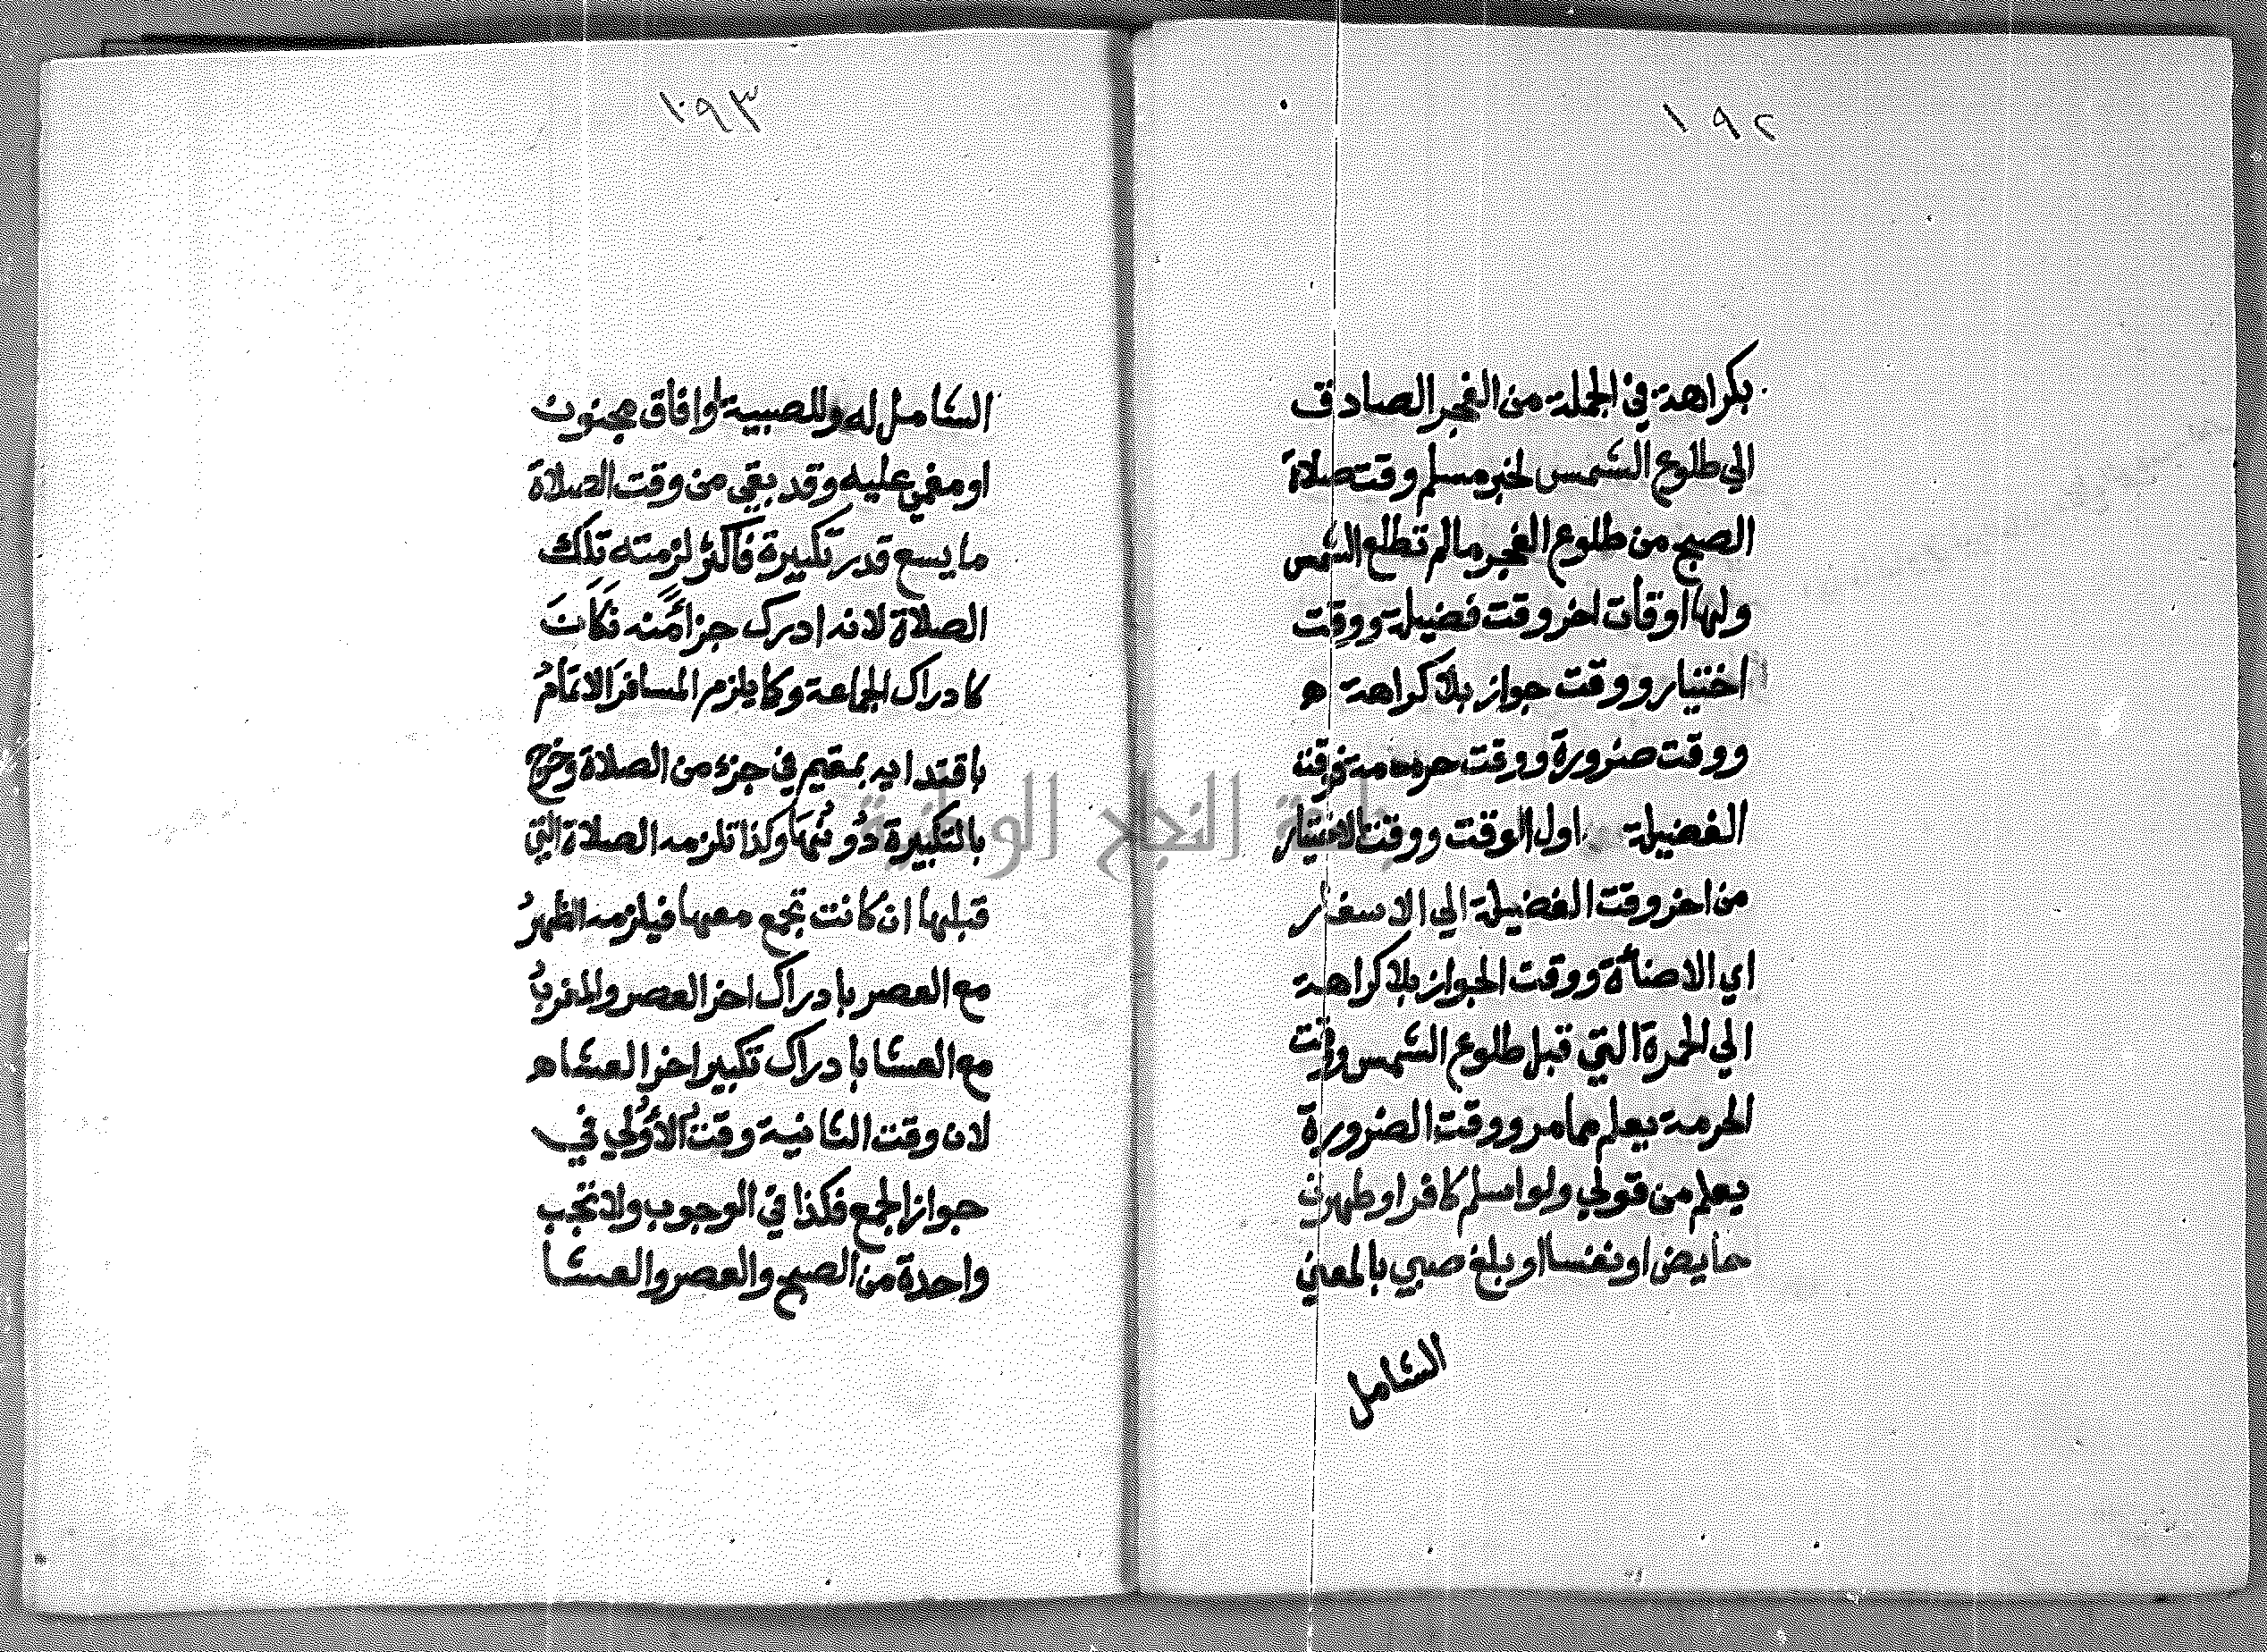 ١٩٢
بكراهة في الجملة من الفجر الصادق
الي طلوع الشمس لخبر مسلم وقت صلاة
الصبح من طلوع الفجر مالم تطلع الشمس
ولها اوقات اخر وقت فضيلة ووقت
اختيار ووقت جواز بلا كراهة ه
ووقت ضرورة ووقت حرمة فوقت
الفضيلة اول الوقت ووقت الاختيار
من اخر وقت الفضيلة الي الاسفار
اي الاضاة ووقت الجواز بلا كراهة
الي الحمرة التي قبل طلوع الشمس ووقت
الحرمة يعلم مما مر ووقت الضرورة
يعلم من قولي ولو اسلم كافر او طهرت
حايض او نفسا او بلغ صبي بالمعني
الشامل
١٩٣
الشامل له وللصبية او افاق مجنون
او مغمي عليه وقد بقي من وقت الصلاة
ما يسع قدر تكبيرة فاكثر لزمته تلك
الصلاة لانه ادرك جزا منه فكانَ
كادراك الجماعة وكما يلزم المسافرَ الاتمامُ
باقتدايه بمقيم في جزء من الصلاة وخرج
بالتكبيرة دُونُهَا وكذا تلزمه الصلاة التي
قبلها ان كانت تجمع معها فيلزمه الظهرُ
مع العصر بادراك اخر العصر والمغربُ
مع العشا بادراك تكبير اخر العشا ه
لان وقت الثانية وقتُ الأُولي في
جواز الجمع فكذا في الوجوب ولا تجب
واحدة من الصبح والعصر والعشا
جامعة النجاح الوطنية